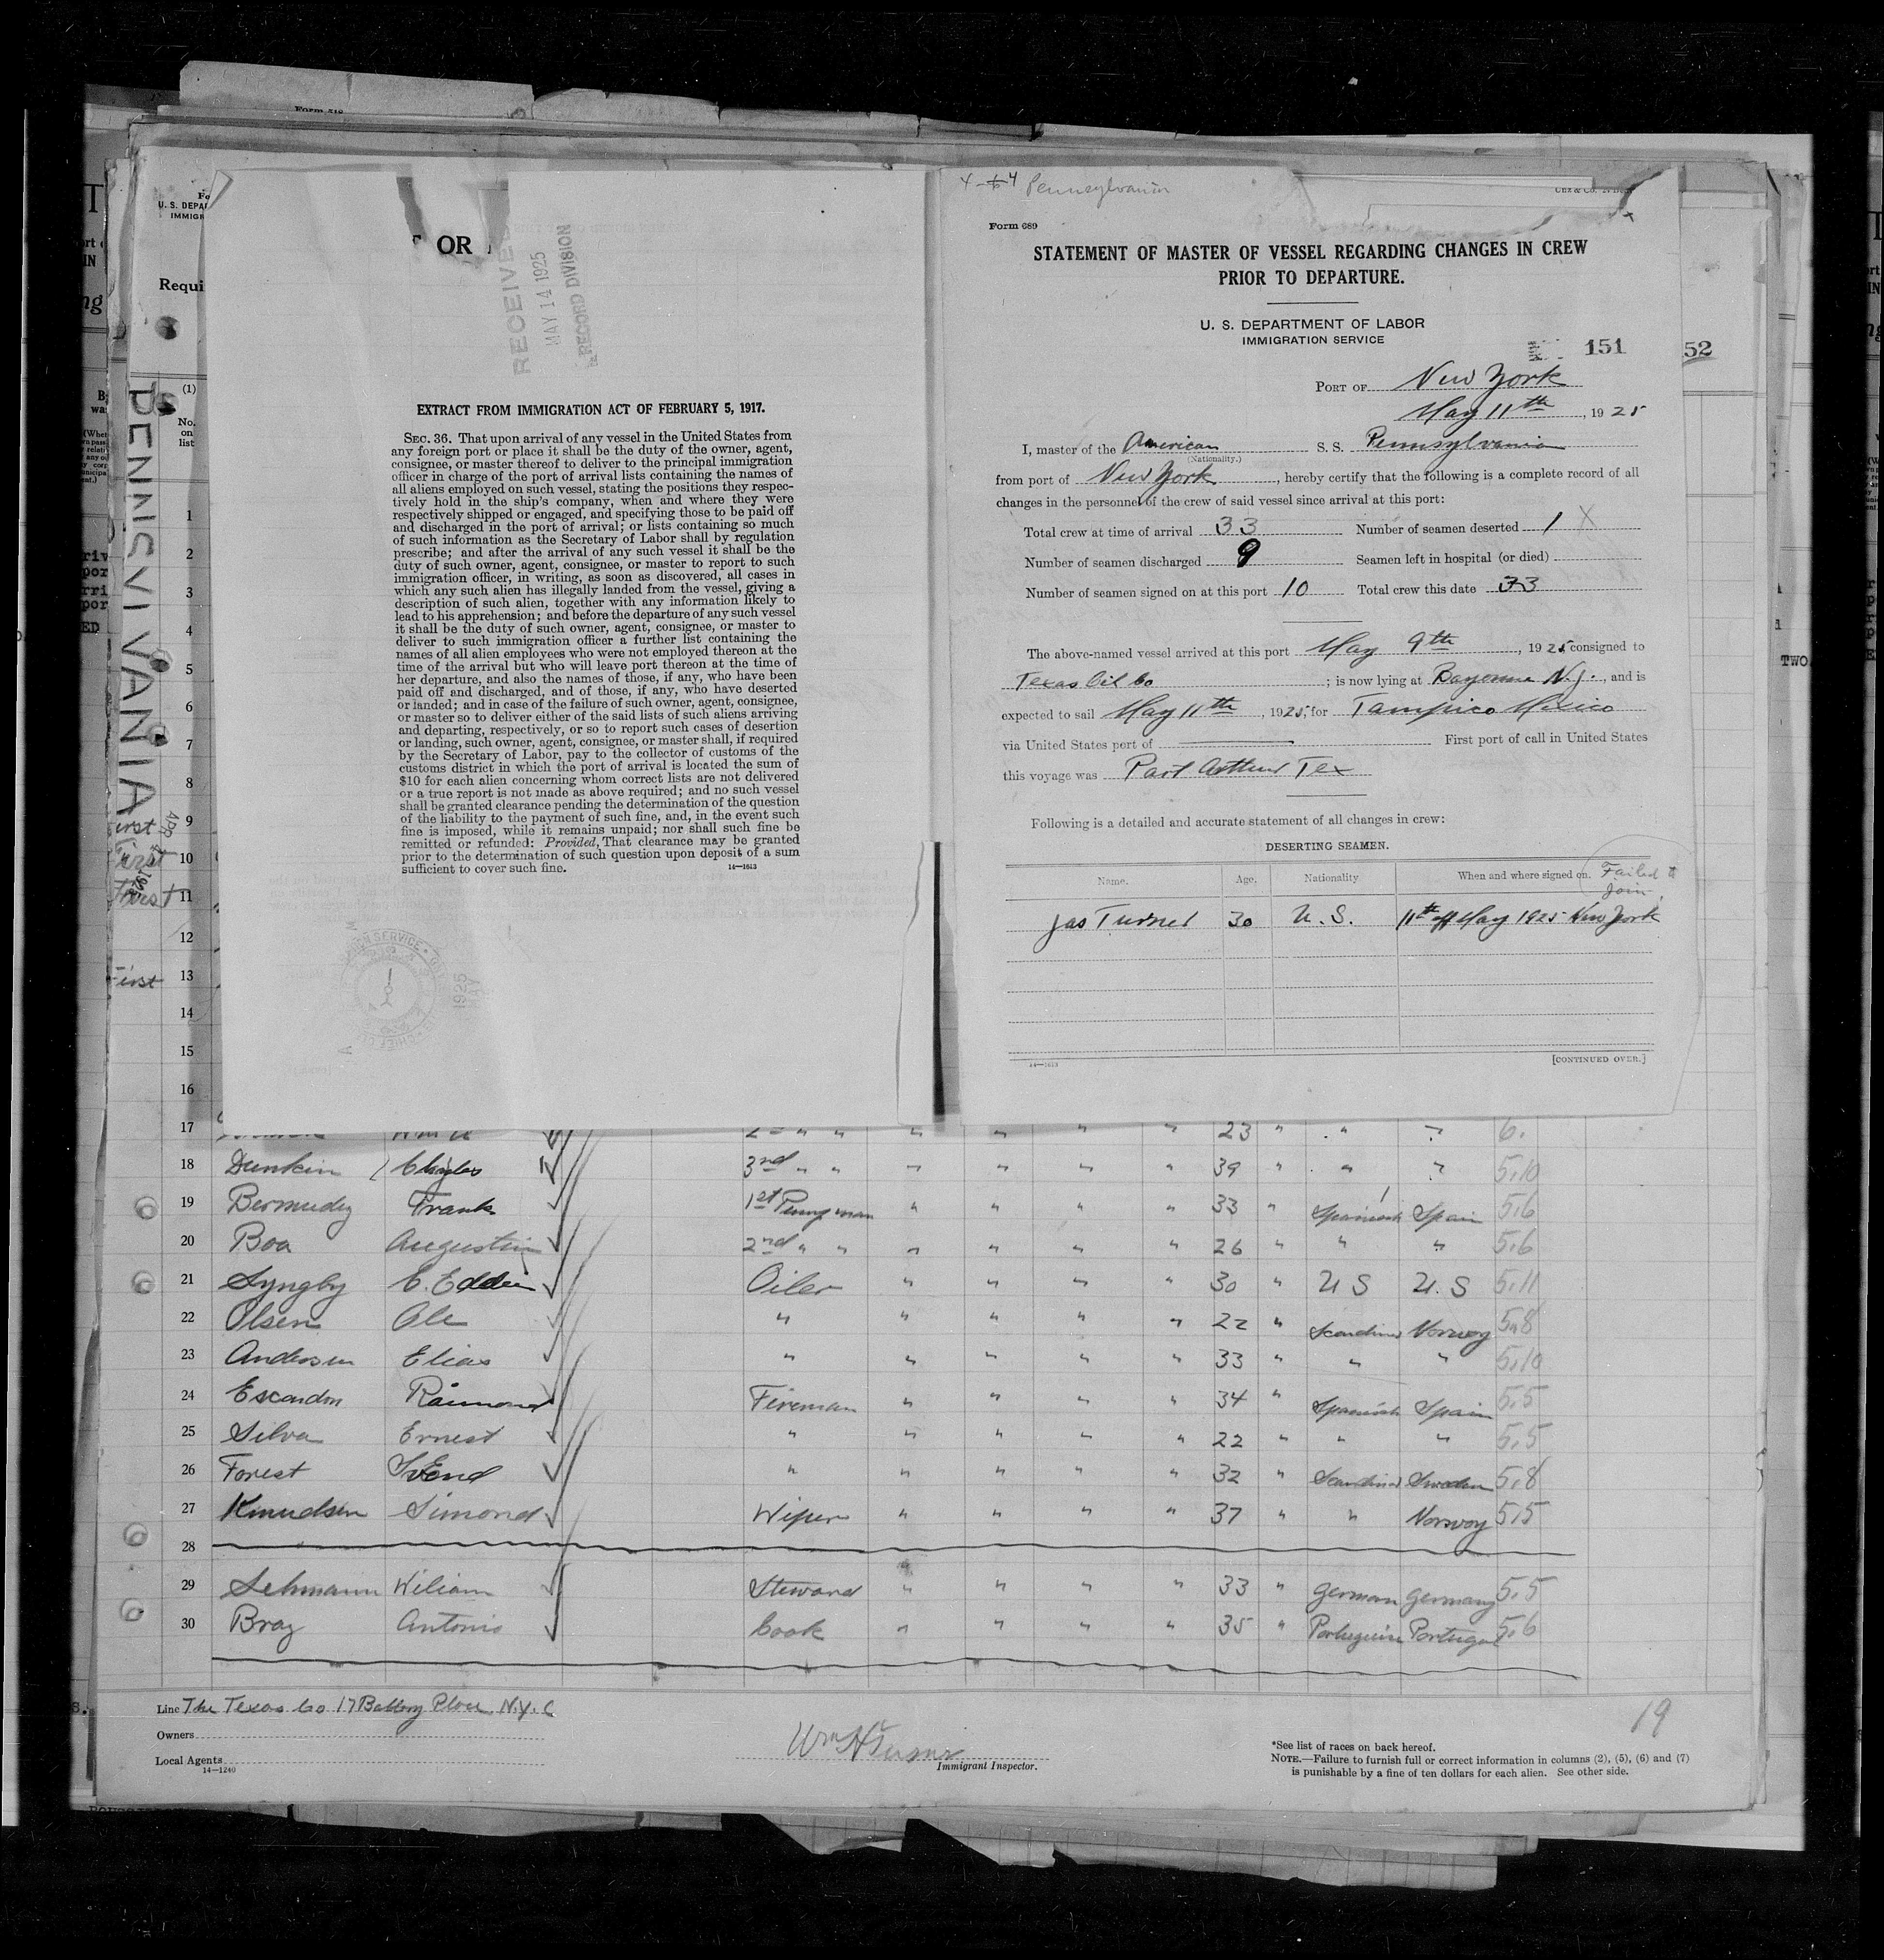 Form 518
U. S. DEPA
IMMIGR
Requi
PENNSYLVANIA
(1)
No.
on
list
OR
RECEIVED
MAY 14 1925
RECORD DIVISION
EXTRACT FROM IMMIGRATION ACT OF FEBRUARY 5, 1917.
SEC. 36. That upon arrival of any vessel in the United States from
any foreign port or place it shall be the duty of the owner, agent,
consignee, or master thereof to deliver to the principal immigration
officer in charge of the port of arrival lists containing the names of
all aliens employed on such vessel, stating the positions they respec-
tively hold in the ship's company, when and where they were
respectively shipped or engaged, and specifying those to be paid off
and discharged in the port of arrival; or lists containing so much
of such information as the Secretary of Labor shall by regulation
prescribe; and after the arrival of any such vessel it shall be the
duty of such owner, agent, consignee, or master to report to such
immigration officer, in writing, as soon as discovered, all cases in
which any such alien has illegally landed from the vessel, giving a
description of such alien, together with any information likely to
lead to his apprehension; and before the departure of any such vessel
it shall be the duty of such owner, agent, consignee, or master to
deliver to such immigration officer a further list containing the
names of all alien employees who were not employed thereon at the
time of the arrival but who will leave port thereon at the time of
her departure, and also the names of those, if any, who have been
paid off and discharged, and of those, if any, who have deserted
or landed; and in case of the failure of such owner, agent, consignee,
or master so to deliver either of the said lists of such aliens arriving
and departing, respectively, or so to report such cases of desertion
or landing, such owner, agent, consignee, or master shall, if required
by the Secretary of Labor, pay to the collector of customs of the
customs district in which the port of arrival is located the sum of
$10 for each alien concerning whom correct lists are not delivered
or a true report is not made as above required; and no such vessel
shall be granted clearance pending the determination of the question
of the liability to the payment of such fine, and, in the event such
fine is imposed, while it remains unpaid; nor shall such fine be
remitted or refunded: Provided, That clearance may be granted
prior to the determination of such question upon deposit of a sum
sufficient to cover such fine. 14—1613
4-64 Pennsylvania
Form 689
STATEMENT OF MASTER OF VESSEL REGARDING CHANGES IN CREW
PRIOR TO DEPARTURE.
U. S. DEPARTMENT OF LABOR
IMMIGRATION SERVICE
151 52
PORT OF New York
May 11th, 1925
I, master of the American S. S. Pennsylvania
(Nationality.)
from port of New York, hereby certify that the following is a complete record of all
changes in the personnel of the crew of said vessel since arrival at this port:
Total crew at time of arrival 33 Number of seamen deserted 1 X
Number of seamen discharged 9 Seamen left in hospital (or died)
Number of seamen signed on at this port 10 Total crew this date 33
The above-named vessel arrived at this port May 9th, 1925 consigned to
Texas Oil Co; is now lying at Bayonne N.J., and is
expected to sail May 11th, 1925, for Tampico Mexico
via United States port of First port of call in United States
this voyage was Port Arthur Tex
Following is a detailed and accurate statement of all changes in crew:
DESERTING SEAMEN.
Name. Age. Nationality When and where signed on. Failed to
Join
Jas Turner 30 U. S. 11th of May 1925 New York
14—1613 [CONTINUED OVER.]
1
2
3
4
5
6
7
8
First 9
First 10
First 11
12
First 13
14
15
16
17 2nd " " " " " " 23 " " " 6.
18 Dunkin Charles 3rd " " " " " " 39 " " " 5.10
19 Bermudez Frank 1st Pumpman " " " " 33 " Spanish Spain 5.6
20 Boa Augustin 2nd " " " " " " 26 " " " 5.6
21 Lyngby C. Eddin Oiler " " " " 30 " U S U. S 5.11
22 Olsen Ole " " " " " 22 " Scandina Norway 5.8
23 Andersen Elias " " " " " 33 " " " 5.10
24 Escandon Raimond Fireman " " " " 34 " Spanish Spain 5.5
25 Silva Ernest " " " " " 22 " " " 5.5
26 Forest SvEnd " " " " " 32 " Scandina Sweden 5.8
27 Knudsen Simond Wiper " " " " 37 " " Norway 5.5
28
29 Lehmann Wiliam Steward " " " " 33 " German Germany 5.5
30 Braz Antonio Cook " " " " 35 " Portuguise Portugal 5.6
Line The Texas Co 17 Battery Place N.Y.C
Owners
Local Agents
14—1240
Wm H Turner
Immigrant Inspector.
19
*See list of races on back hereof.
NOTE.—Failure to furnish full or correct information in columns (2), (5), (6) and (7)
is punishable by a fine of ten dollars for each alien. See other side.